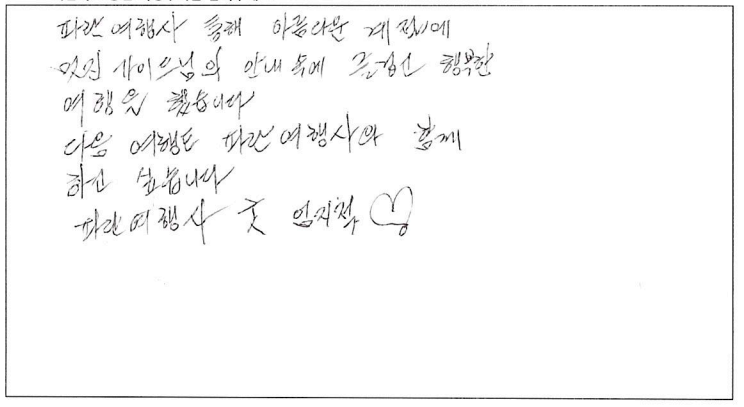 파란여행사 통해 아름다운 계절에
멋진 가이드님의 안내 속에 즐겁고 행복한
여행을 했습니다
다음 여행도 파란여행사와 함께
하고 싶습니다
파란여행사 굿 엄지척 ♡